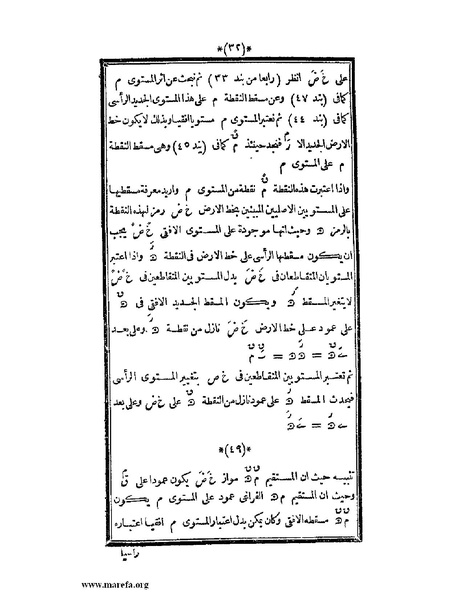 *(٣٢)*
على خَ ضَ انظر (رابعا من بند ٣٣) ثم نبحث عن اثر المستوى م
كما فى (بند ٤٧) وعن مسقط النقطة م على هذا المستوى الجديد الرأسى
كما فى (بند ٤٤) ثم نعتبر المستوى م مستويا افقيا وبذلك لا يكون خط
الارض الجديد الا فنجد حينئذ كما فى (بند ٤٥) وهى مسقط النقطة
م على المستوى م
واذا اعتبرت هذه النقطة نقطة من المستوى م واريد معرفة مسقطيها
على المستويين الاصليين المبينين بخط الارض خ ض رمز لهذه النقطة
بالرمز وحيث انها موجودة على المستوى الافقى يجب
ان يكون مسقطها الرأسى على خط الارض فى النقطة واذا اعتبر
المستويان المتقاطعان فى خَ ضَ بدل المستويين المتقاطعين فى
لا يتغير المسقط ويكون المسقط الجديد الافقى فى
على عمود على خط الارض خَ ضَ نازل من نقطة وعلى بعد
ثم تعتبر المستويين المتقاطعين فى خ ض بتغيير المستوى الرأسى
فيحدث المسقط على عمود نازل من النقطة على خ ض وعلى بعد
*(٤٩)*
تنبيه حيث ان المستقيم مواز خَ ضَ يكون عمودا على
وحيث ان المستقيم الفراغى عمود على المستوى م يكون
مسقطه الافقى وكان يمكن بدل اعتبار المستوى م افقيا اعتباره
راسيا
www.marefa.org